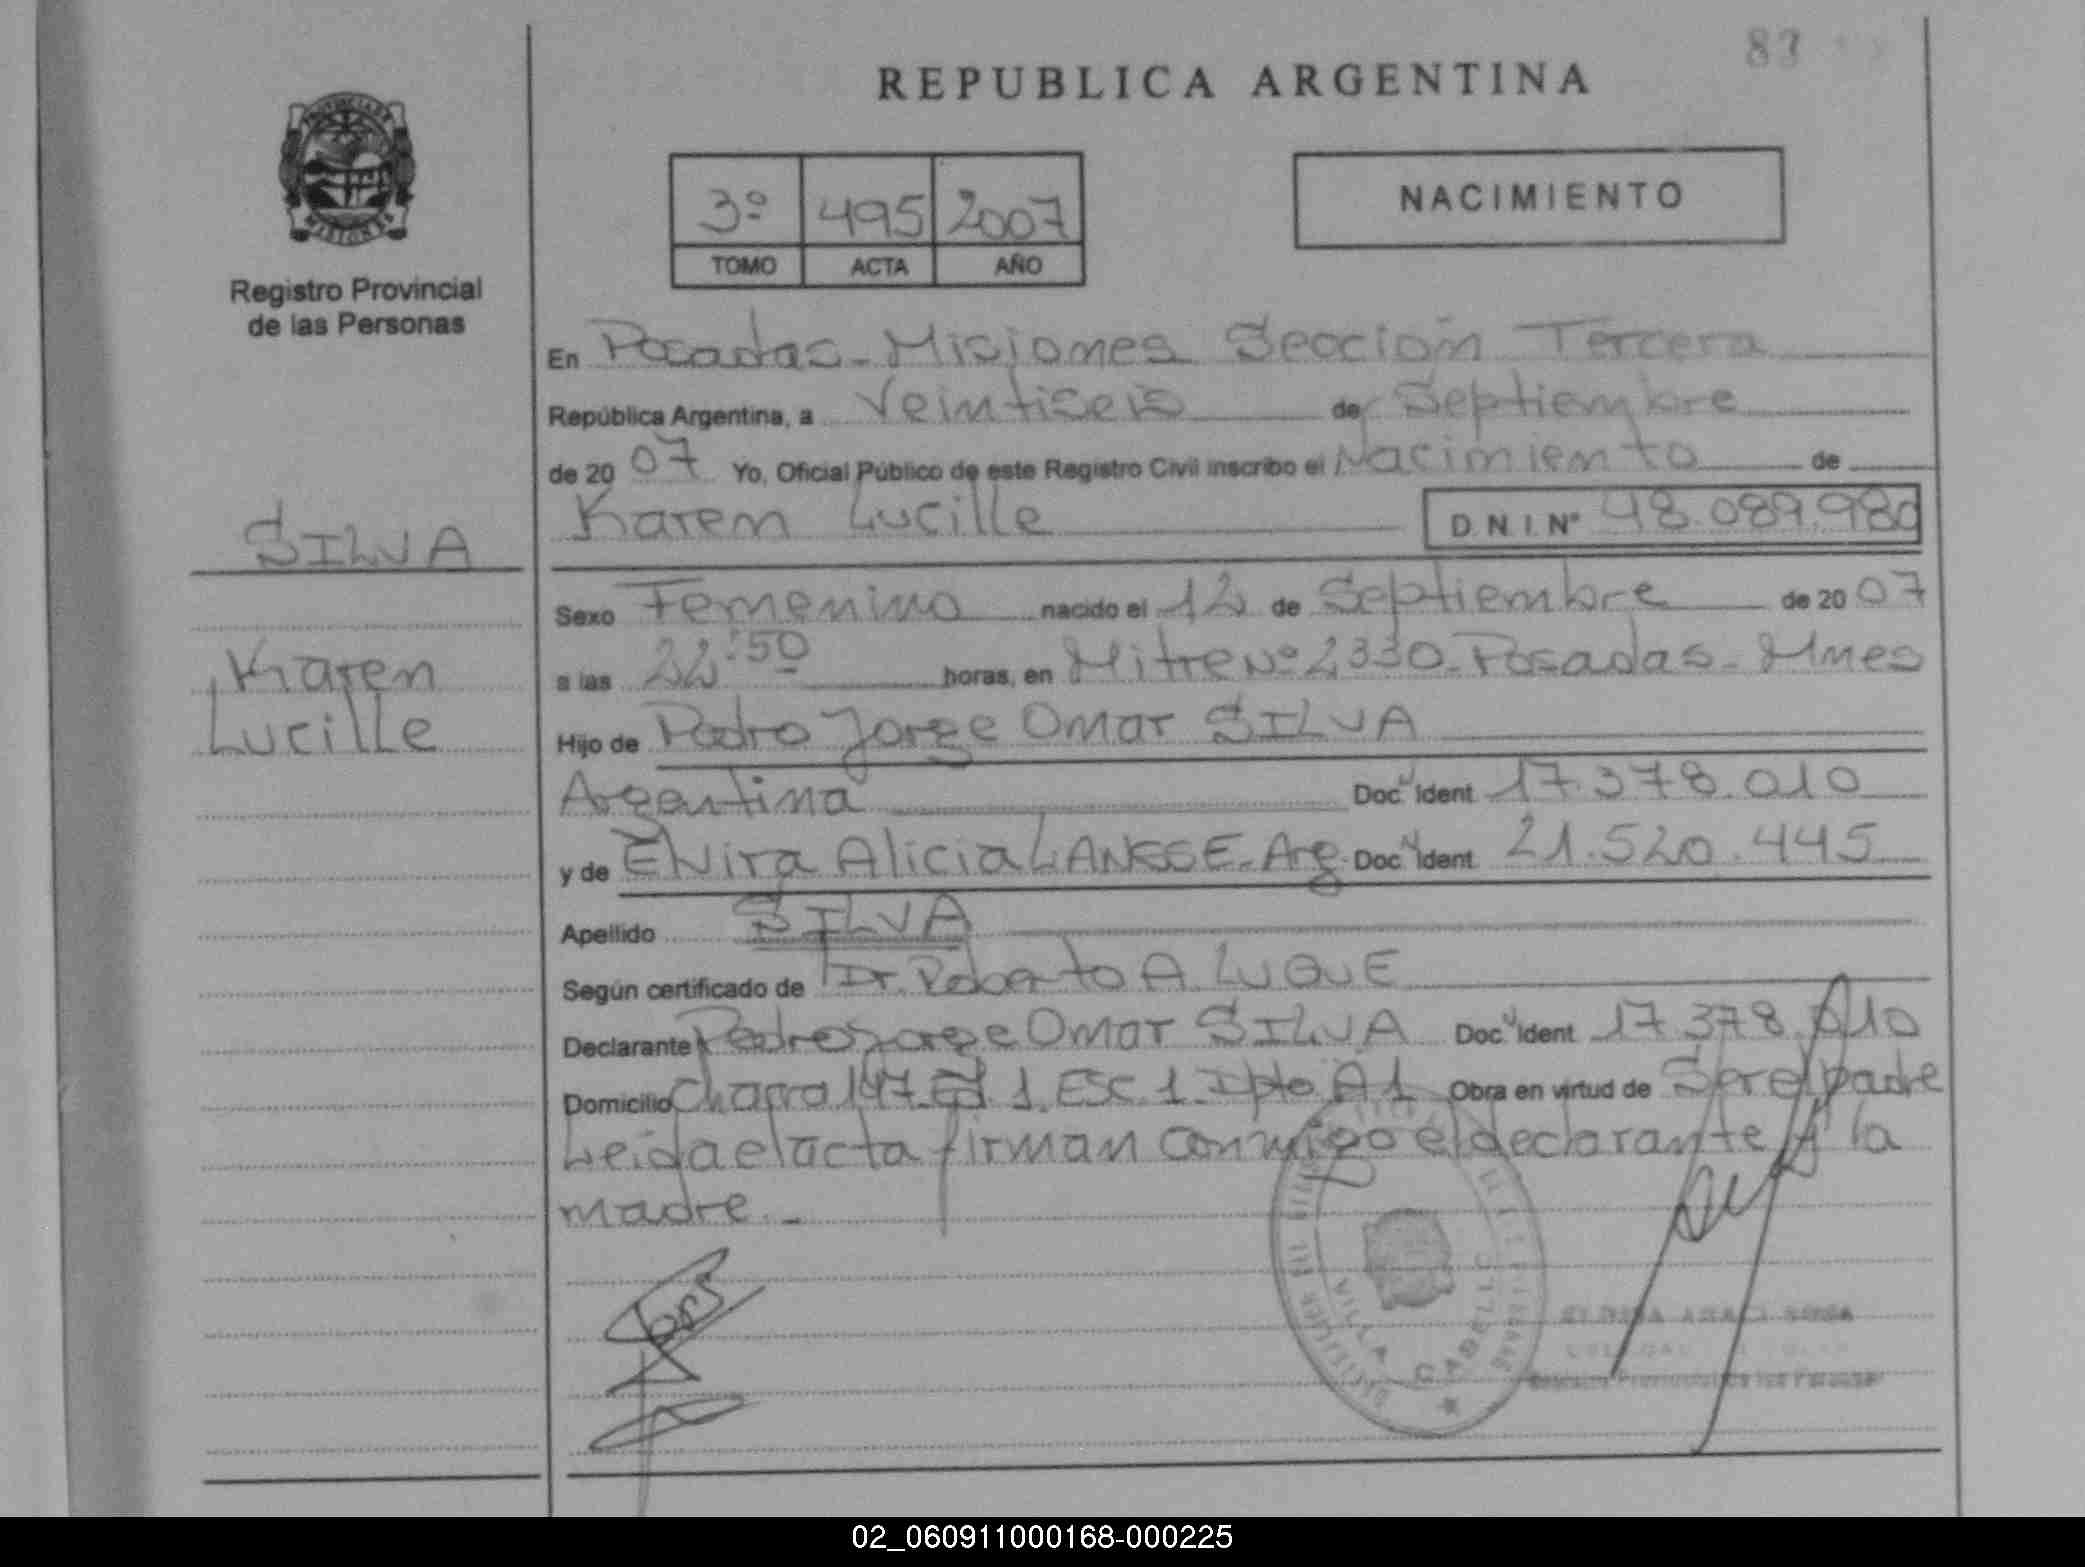 83
REPUBLICA ARGENTINA
PROVINCIA DE
MISIONES
Registro Provincial
de las Personas
3º 495 2007
TOMO ACTA AÑO
NACIMIENTO
En Posadas - Misiones Sección Tercera
República Argentina, a Veintiseis de Septiembre
de 20 07 Yo, Oficial Público de este Registro Civil inscribo el Nacimiento de
Karem Lucille D.N.I.Nº 48.089.980
SILVA
Sexo Femenino nacido el 12 de Septiembre de 20 07
Karen
a las 22:50 horas, en Mitre Nº 2330 - Posadas - Mnes
Lucille
Hijo de Pedro Jorge Omar SILVA
Argentina Doc. Ident 17.378.010
y de Elvira Alicia LANSSE - Arg. Doc. Ident 21.520.445
Apellido SILVA
Según certificado de Dr. Roberto A. LUQUE
Declarante Pedro Jorge Omar SILVA Doc. Ident 17.378.010
Domicilio Chacra 147 Ed 1 Esc. 1 Dpto A1 Obra en virtud de Ser el padre
Leida el acta firman conmigo el declarante y la
madre. -
VILLA CABELLO
Registro Provincial de las Personas
02_060911000168-000225